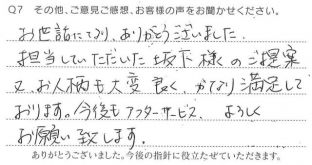 Q7 その他、ご意見ご感想、お客様の声をお聞かせください。
お世話になり、ありがとうございました。
担当していただいた坂下様のご提案
又、お人柄も大変良く、かなり満足して
おります。今後もアフターサービス、よろしく
お願い致します。
ありがとうございました。今後の指針に役立たせていただきます。